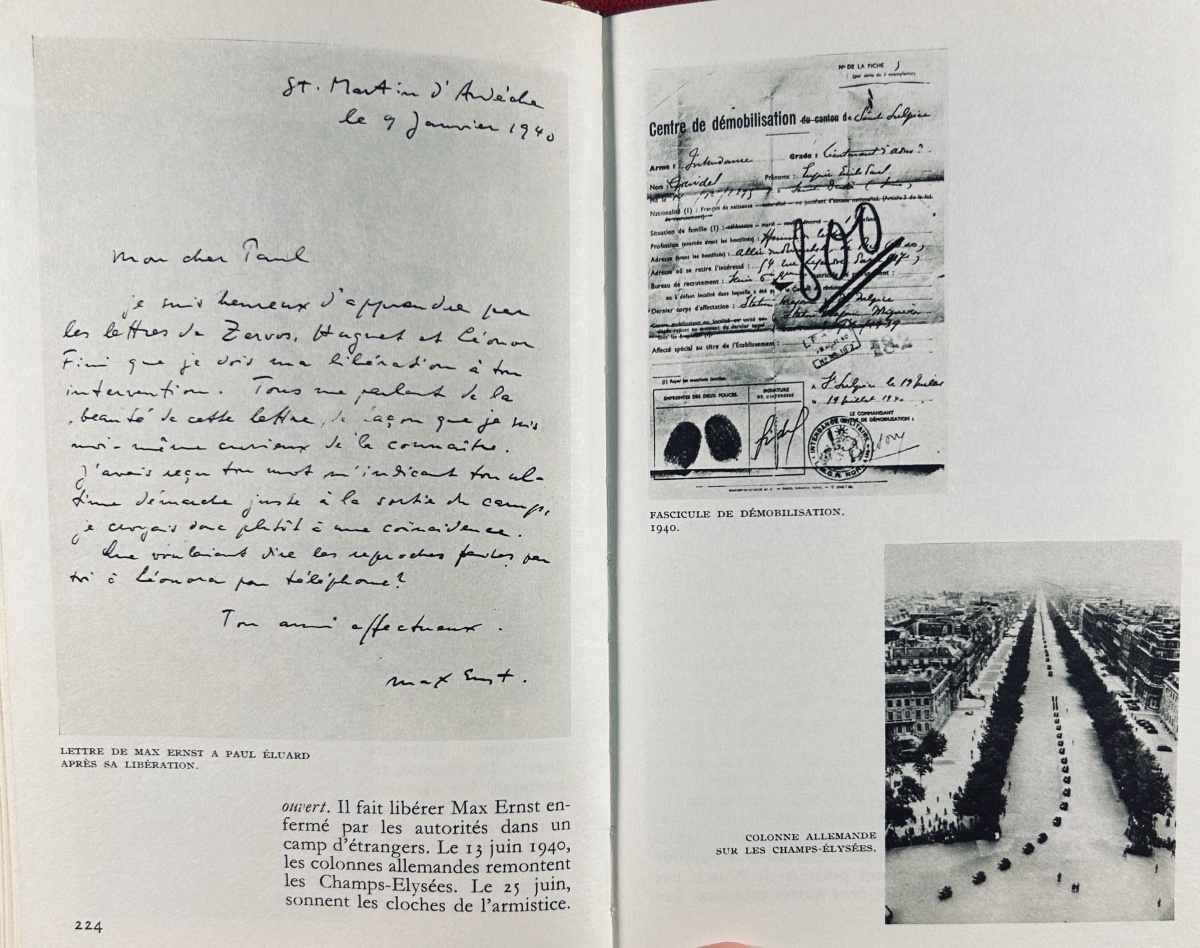 St. Martin d'Ardèche
le 9 Janvier 1940
Mon cher Paul
je suis heureux d'apprendre par
les lettres de Zervos, Hugnet et Léonor
Fini que je dois ma libération à ton
intervention. Tous me parlent de la
beauté de cette lettre, de façon que je suis
moi-même curieux de la connaître.
J'avais reçu ton mot m'indicant ton ul-
time démarche juste à la sortie du camp,
je croyais donc plutôt à une coïncidence.
Que voulaient dire les reproches faites par
toi à Léonora par téléphone?
Ton ami affectueux.
Max Ernst.
LETTRE DE MAX ERNST A PAUL ÉLUARD
APRÈS SA LIBÉRATION.
ouvert. Il fait libérer Max Ernst en-
fermé par les autorités dans un
camp d'étrangers. Le 13 juin 1940,
les colonnes allemandes remontent
les Champs-Elysées. Le 25 juin,
sonnent les cloches de l'armistice.
224
N° DE LA FICHE
Centre de démobilisation du canton de Saint Sulpice
Arme : Intendance Grade : Lieutenant
Nom : Grindel Prénoms : Eugène Emile Paul
Nationalité (1) : Français de naissance
Situation de famille (1) :
Profession (exercée avant les hostilités) :
Adresse (avant les hostilités) :
Adresse où se retire l'intéressé : 54 rue
Bureau de recrutement :
Dernier corps d'affectation :
Affecté spécial au titre de l'Etablissement :
800
(1) Rayer les mentions inutiles.
EMPREINTES DES DEUX POUCES. SIGNATURE
DE L'INTÉRESSÉ
A St Sulpice le 19 Juillet
19 Juillet 1940
LE COMMANDANT
DE DÉMOBILISATION :
INTENDANCE MILITAIRE
FASCICULE DE DÉMOBILISATION.
1940.
COLONNE ALLEMANDE
SUR LES CHAMPS-ÉLYSÉES.